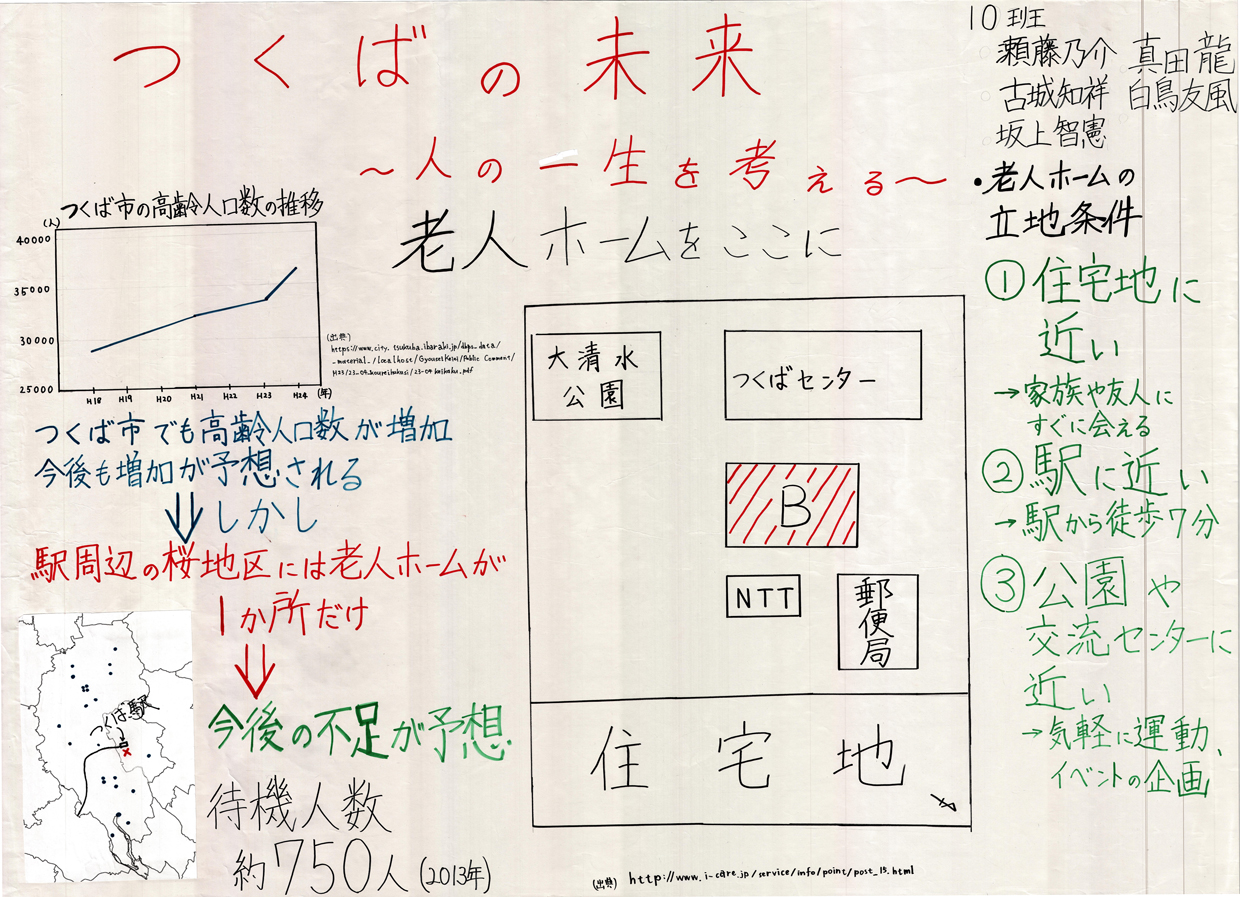 つくばの未来
～人の一生を考える～
老人ホームをここに
10班
瀬藤乃介 真田龍
古城知祥 白鳥友風
坂上智憲
つくば市の高齢人口数の推移
(人)
40000
35000
30000
25000
H18 H19 H20 H21 H22 H23 H24 (年)
(出典)
https://www.city.tsukuba.ibaraki.jp/dbps_data/
_material_/localhost/
つくば市でも高齢人口数が増加
今後も増加が予想される
⇓しかし
駅周辺の桜地区には老人ホームが
1か所だけ
⇓
今後の不足が予想
つくば駅
待機人数
約750人(2013年)
大清水
公園
つくばセンター
B
NTT
郵便局
住宅地
(出典) http://www.i-care.jp/service/info/point/post_15.html
・老人ホームの
立地条件
①住宅地に
近い
→家族や友人に
すぐに会える
②駅に近い
→駅から徒歩7分
③公園や
交流センターに
近い
→気軽に運動、
イベントの企画